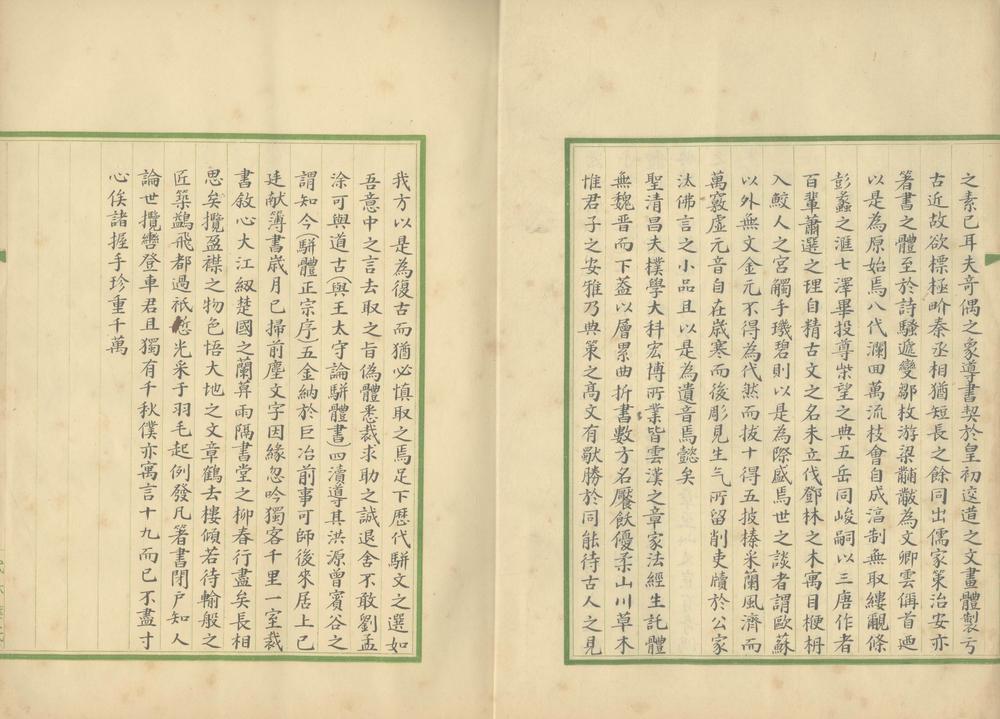 之素已耳夫奇偶之象導書契於皇初遒遒之文畫體製亏
古近故欲標極畍秦丞相猶短長之餘同出儒家策治安亦
箸書之體至於詩騷遞變鄒枚游梁黼黻為文卿雲偁首迺
以是為原始焉八代瀾回萬流枝會自成滈制無取縷覼條
彭蠡之滙七澤畢投尊崇望之典五岳同峻嗣以三唐作者
百輩蕭選之理自精古文之名未立伐鄧林之木寓目楩枏
入鮫人之宮觸手璣碧則以是為際盛焉世之談者謂歐蘇
以外無文金元不得為代然而拔十得五披榛采蘭風濟而
萬竅虛元音自在歲寒而後彫見生气所留削吏牘於公家
汰佛言之小品且以是為遺音焉懿矣
聖清昌夫樸學大科宏博所業皆雲漢之章家法經生託體
無魏晋而下葢以層累曲折書數方名饜飫優柔山川草木
惟君子之安雅乃典策之高文有歇勝於同能待古人之見
我方以是為復古而猶必慎取之焉足下歷代駢文之選如
吾意中之言去取之旨偽體悉裁求助之誠退舍不敢劉孟
涂可與道古與王太守論駢體書四瀆導其洪源曾賓谷之
謂知今駢體正宗序五金納於巨冶前事可師後來居上已
廷献簿書歲月已掃前塵文字因緣忽吟獨客千里一室裁
書敘心大江級楚國之蘭算雨隔書堂之柳春行盡矣長相
思矣攬盈襟之物色悟大地之文章鶴去樓傾若待輸般之
匠築鷁飛都過祇光采于羽毛起例發凡箸書閉戶知人
論世攬轡登車君且獨有千秋僕亦寓言十九而已不盡寸
心俟諸握手珍重千萬